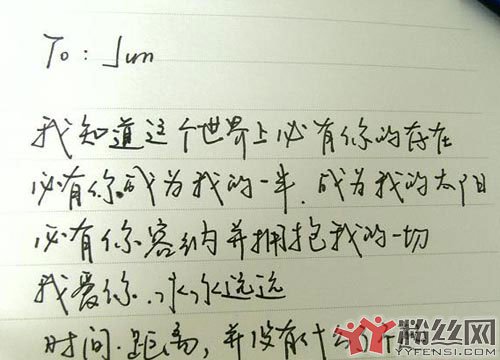 To: Jun
我知道这个世界上必有你的存在
必有你.成为我的一半.成为我的太阳
必有你容纳并拥抱我的一切
我爱你.永永远远
时间.距离,并没有什么
粉丝网
IYFENSI.COM